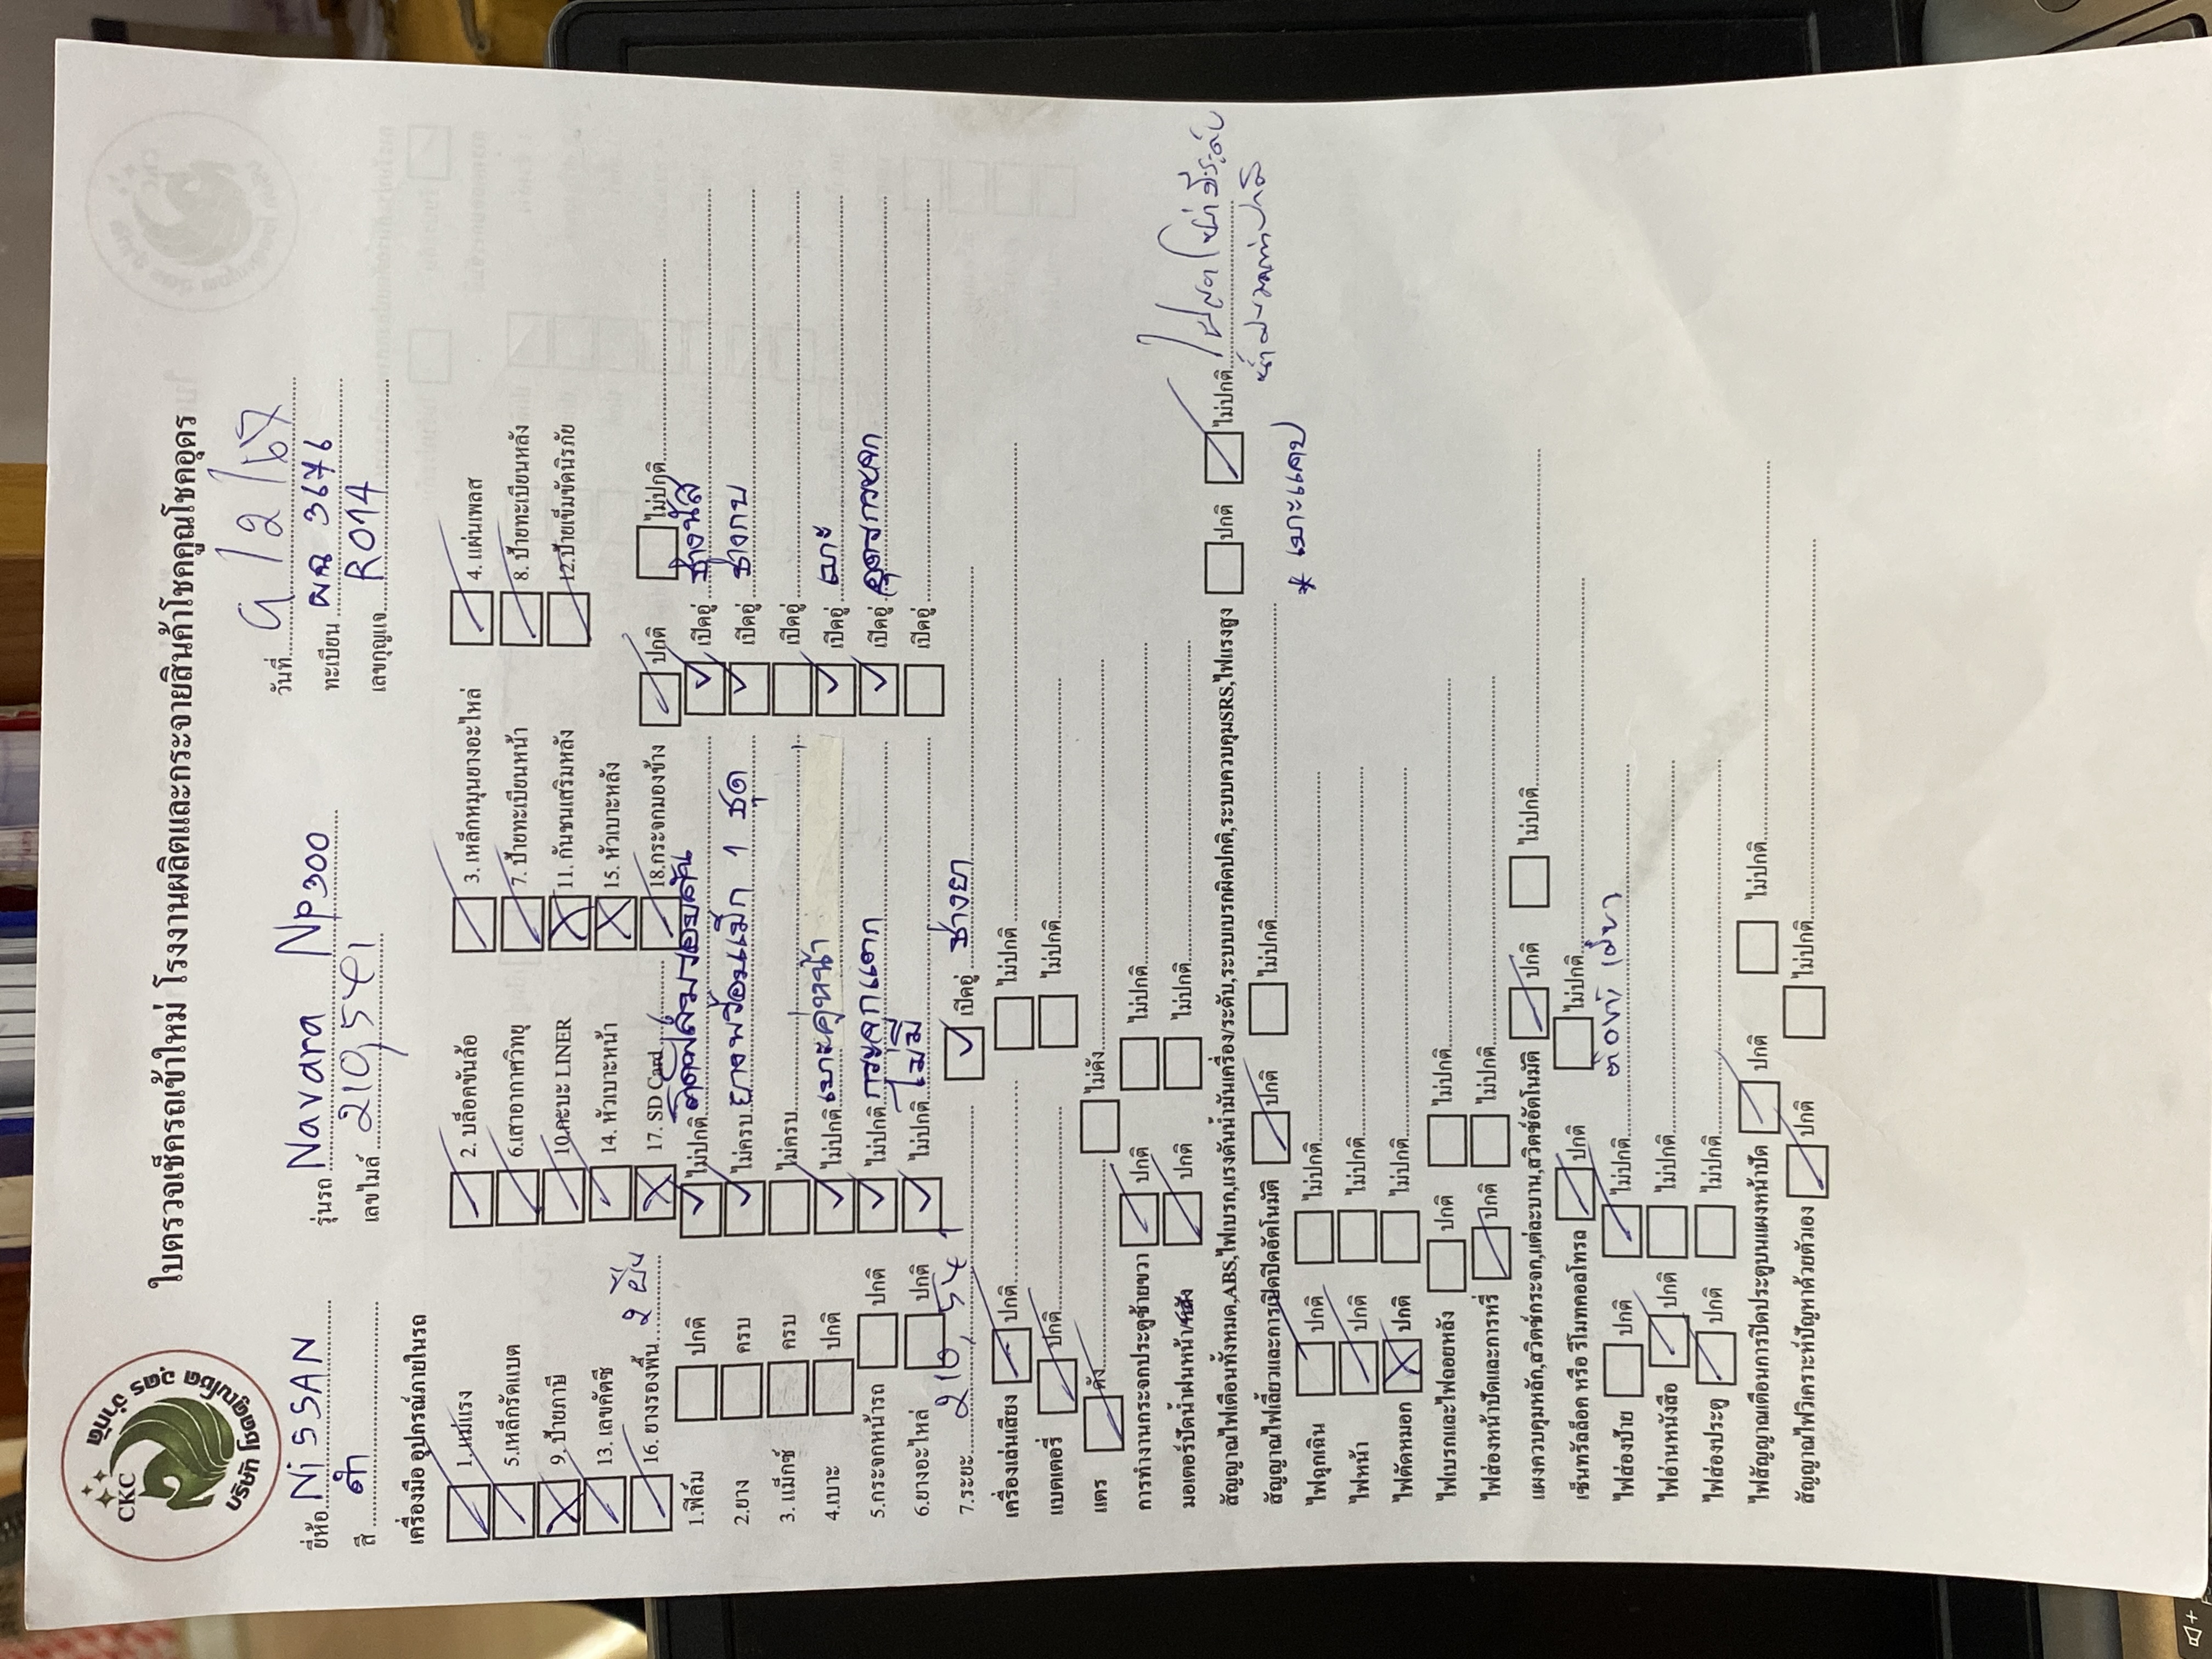 CKC
บริษัท โชคคูณโชค อุดร จำกัด
ใบตรวจเช็ครถเข้าใหม่ โรงงานผลิตและกระจายสินค้าโชคคูณโชคอุดร
วันที่ 9/2/67
ยี่ห้อ NiSSAN รุ่นรถ Navara Np300 ทะเบียน ผฉ 3676
สี ดำ เลขไมล์ 210,541 เลขกุญแจ R014
เครื่องมือ อุปกรณ์ภายในรถ
1.แม่แรง 2. บล็อคขันล้อ 3. เหล็กหมุนยางอะไหล่ 4. แผ่นเพลส
5.เหล็กรัดแบต 6.เสาอากาศวิทยุ 7.ป้ายทะเบียนหน้า 8. ป้ายทะเบียนหลัง
9.ป้ายภาษี 10.กะบะ LINER 11. กันชนเสริมหลัง 12.ป้ายเข็มขัดนิรภัย
13. เลขคัคซี 14. หัวเบาะหน้า 15. หัวเบาะหลัง
16. ยางรองพื้น 2 ชิ้น 17. SD Card 18.กระจกมองข้าง ปกติ ไม่ปกติ
1.ฟิล์ม ปกติ ไม่ปกติ ติดฟิล์มรอบคัน เปิดอู่ ช่างนัส
2.ยาง ครบ ไม่ครบ ยางพร้อมแม็ก 1 ชุด เปิดอู่ ช่างกบ
3. แม็กซ์ ครบ ไม่ครบ เปิดอู่
4.เบาะ ปกติ ไม่ปกติ เบาะคู่หน้า เปิดอู่ เบาะ
5.กระจกหน้ารถ ปกติ ไม่ปกติ กระจกแตก เปิดอู่ อุดรกระจก
6.ยางอะไหล่ ปกติ ไม่ปกติ ไม่มี เปิดอู่
7.ระยะ 210,541 เปิดอู่ ช่างยา
เครื่องเล่นเสียง ปกติ ไม่ปกติ
แบตเตอรี่ ปกติ ไม่ปกติ
แตร ดัง ไม่ดัง
การทำงานกระจกประตูซ้ายขวา ปกติ ไม่ปกติ
มอเตอร์ปัดน้ำฝนหน้า/หลัง ปกติ ไม่ปกติ
สัญญาณไฟเตือนทั้งหมด,ABS,ไฟเบรก,แรงดันน้ำมันเครื่อง/ระดับ,ระบบเบรกผิดปกติ,ระบบควบคุมSRS,ไฟแรงสูง ปกติ ไม่ปกติ
สัญญาณไฟเลี้ยวและการเปิดปิดอัตโนมัติ ปกติ ไม่ปกติ
* เบาะแคป
ไฟฉุกเฉิน ปกติ ไม่ปกติ
ไฟหน้า ปกติ ไม่ปกติ
ไฟตัดหมอก ปกติ ไม่ปกติ
ไฟเบรกและไฟถอยหลัง ปกติ ไม่ปกติ
ไฟส่องหน้าปัดและการหรี่ ปกติ ไม่ปกติ
แผงควบคุมหลัก,สวิตช์กระจก,แต่ละบาน,สวิตช์อัตโนมัติ ปกติ ไม่ปกติ
เซ็นทรัลล็อค หรือ รีโมทคอลโทรล ปกติ ไม่ปกติ
ไฟส่องป้าย ปกติ ไม่ปกติ
ไฟอ่านหนังสือ ปกติ ไม่ปกติ
ไฟส่องประตู ปกติ ไม่ปกติ
ไฟสัญญาณเตือนการปิดประตูบนแผงหน้าปัด ปกติ ไม่ปกติ
สัญญาณไฟวิเคราะห์ปัญหาด้วยตัวเอง ปกติ ไม่ปกติ